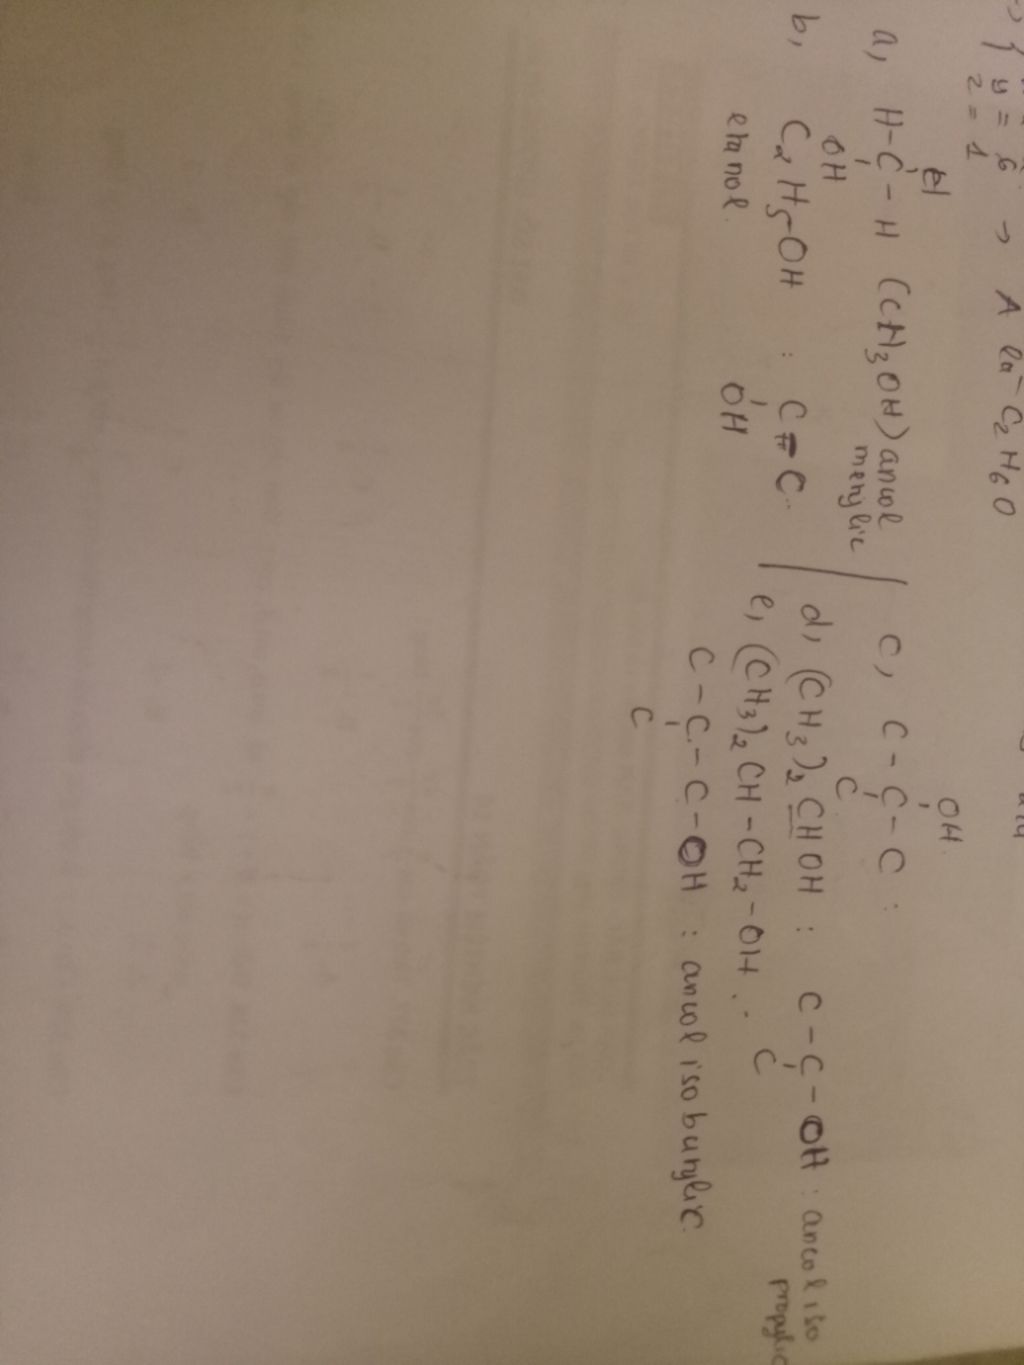 y = 6 → A là C2H6O
z = 1
OH
a, H-C-H (CH3OH) ancol metylic
OH
b, C2H5OH : C-C
OH
etanol.
OH
c, C-C-C :
C
d, (CH3)2CHOH : C-C-OH : ancol iso propylic
C
e, (CH3)2CH-CH2-OH :
C-C-C-OH : ancol iso butylic
C